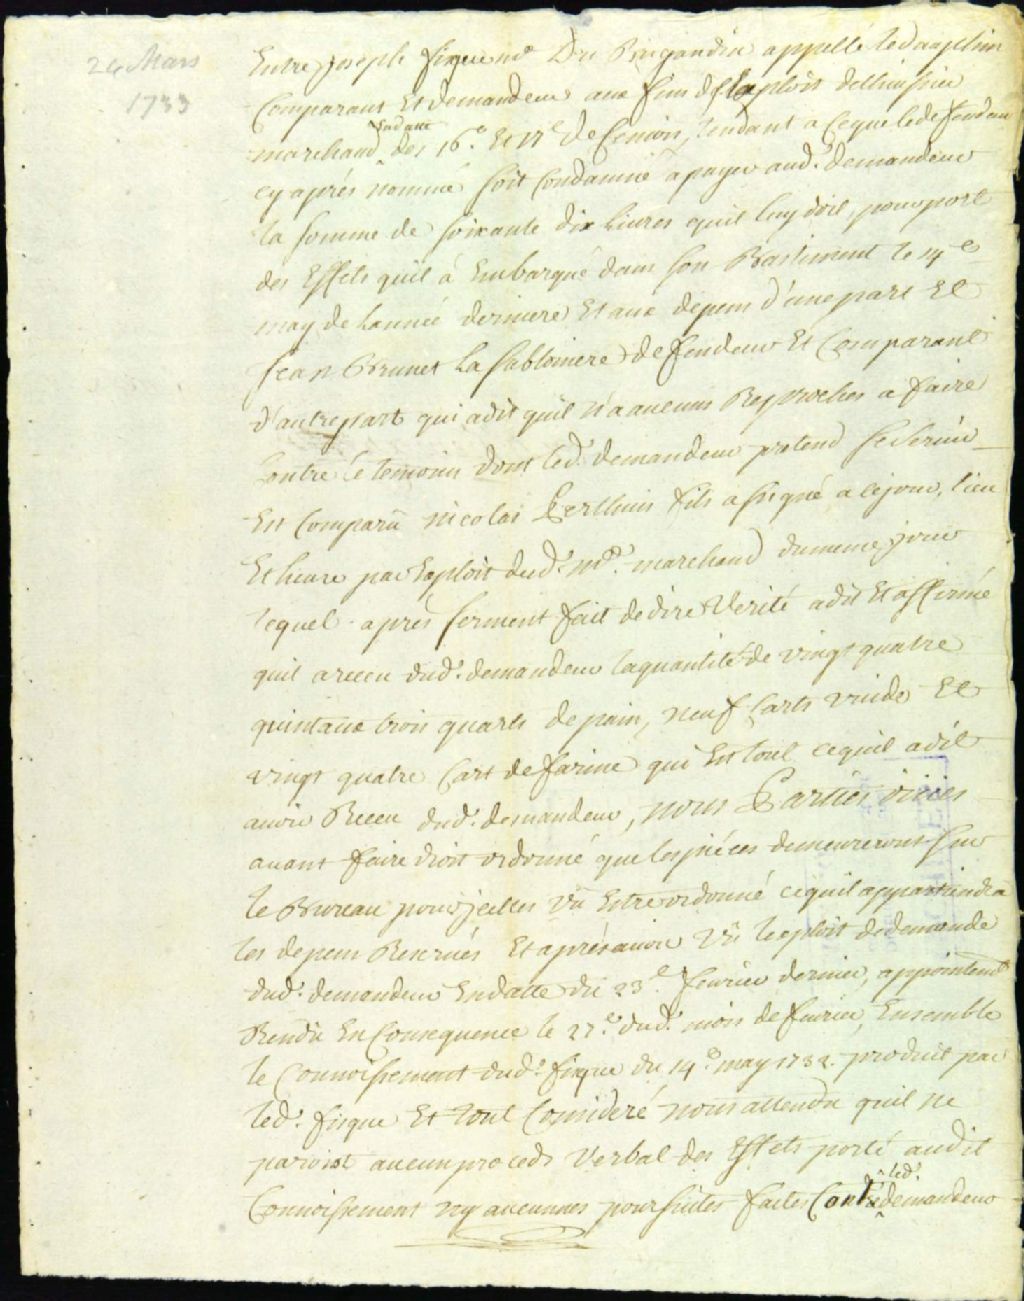 24 Mars
1733
Entre joseph fisque md Du Brigandin appellé ledauphin
Comparant Et demandeur aux fins de lExploit delhuissier
marchand Endatte des 16e. Et 17e de ce mois, tendant a ceque le defendeur
cy aprés nommé soit Condamné a payer aud. demandeur
la somme de soixante dix livres quil luy doit, pour port
des Effets quil á Embarqué dans son Bastiment le 14e
may de Lannée derniere Et aux depens d'une part Et
jean Brunet La sablonniere defendeur Et Comparant
d'autrepart qui adit quil n'a aucuns Reproches a faire
Contre le temoin dont led. demandeur pretend se servir
Est Comparû nicolas Perthuis fils assigné a cejour, lieu
Et heure par Exploit dud. me. marchand dumeme jour
lequel aprés serment fait de dire Verité adit Et affirmé
quil areceu dud. demandeur laquantité de vingt quatre
quintaux trois quarts de pain, neuf Carts vuide Et
vingt quatre Cart de farine qui Est tout cequil adit
avoir Receu dud. demandeur, nous Parties oüies
avant faire droit ordonné que lespiéces demeureront sur
le Bureau pour jcelles vû Estre ordonné cequil appartiendra
les depens Reservés Et aprésavoir Vû lexploit dedemande
dud. demandeur Endatte du 23e fevrier dernier, appointemt
Rendu En Consequence le 27e. dud. mois de fevrier, Ensemble
le Connoissement dud. fisque du 14e may 1732. produit par
led. fisque Et tout Consideré nous attendu quil ne
paroist aucun procedz Verbal des Effets porté audit
Connoissement ny aucunnes poursuittes faites Contre led. demandeur